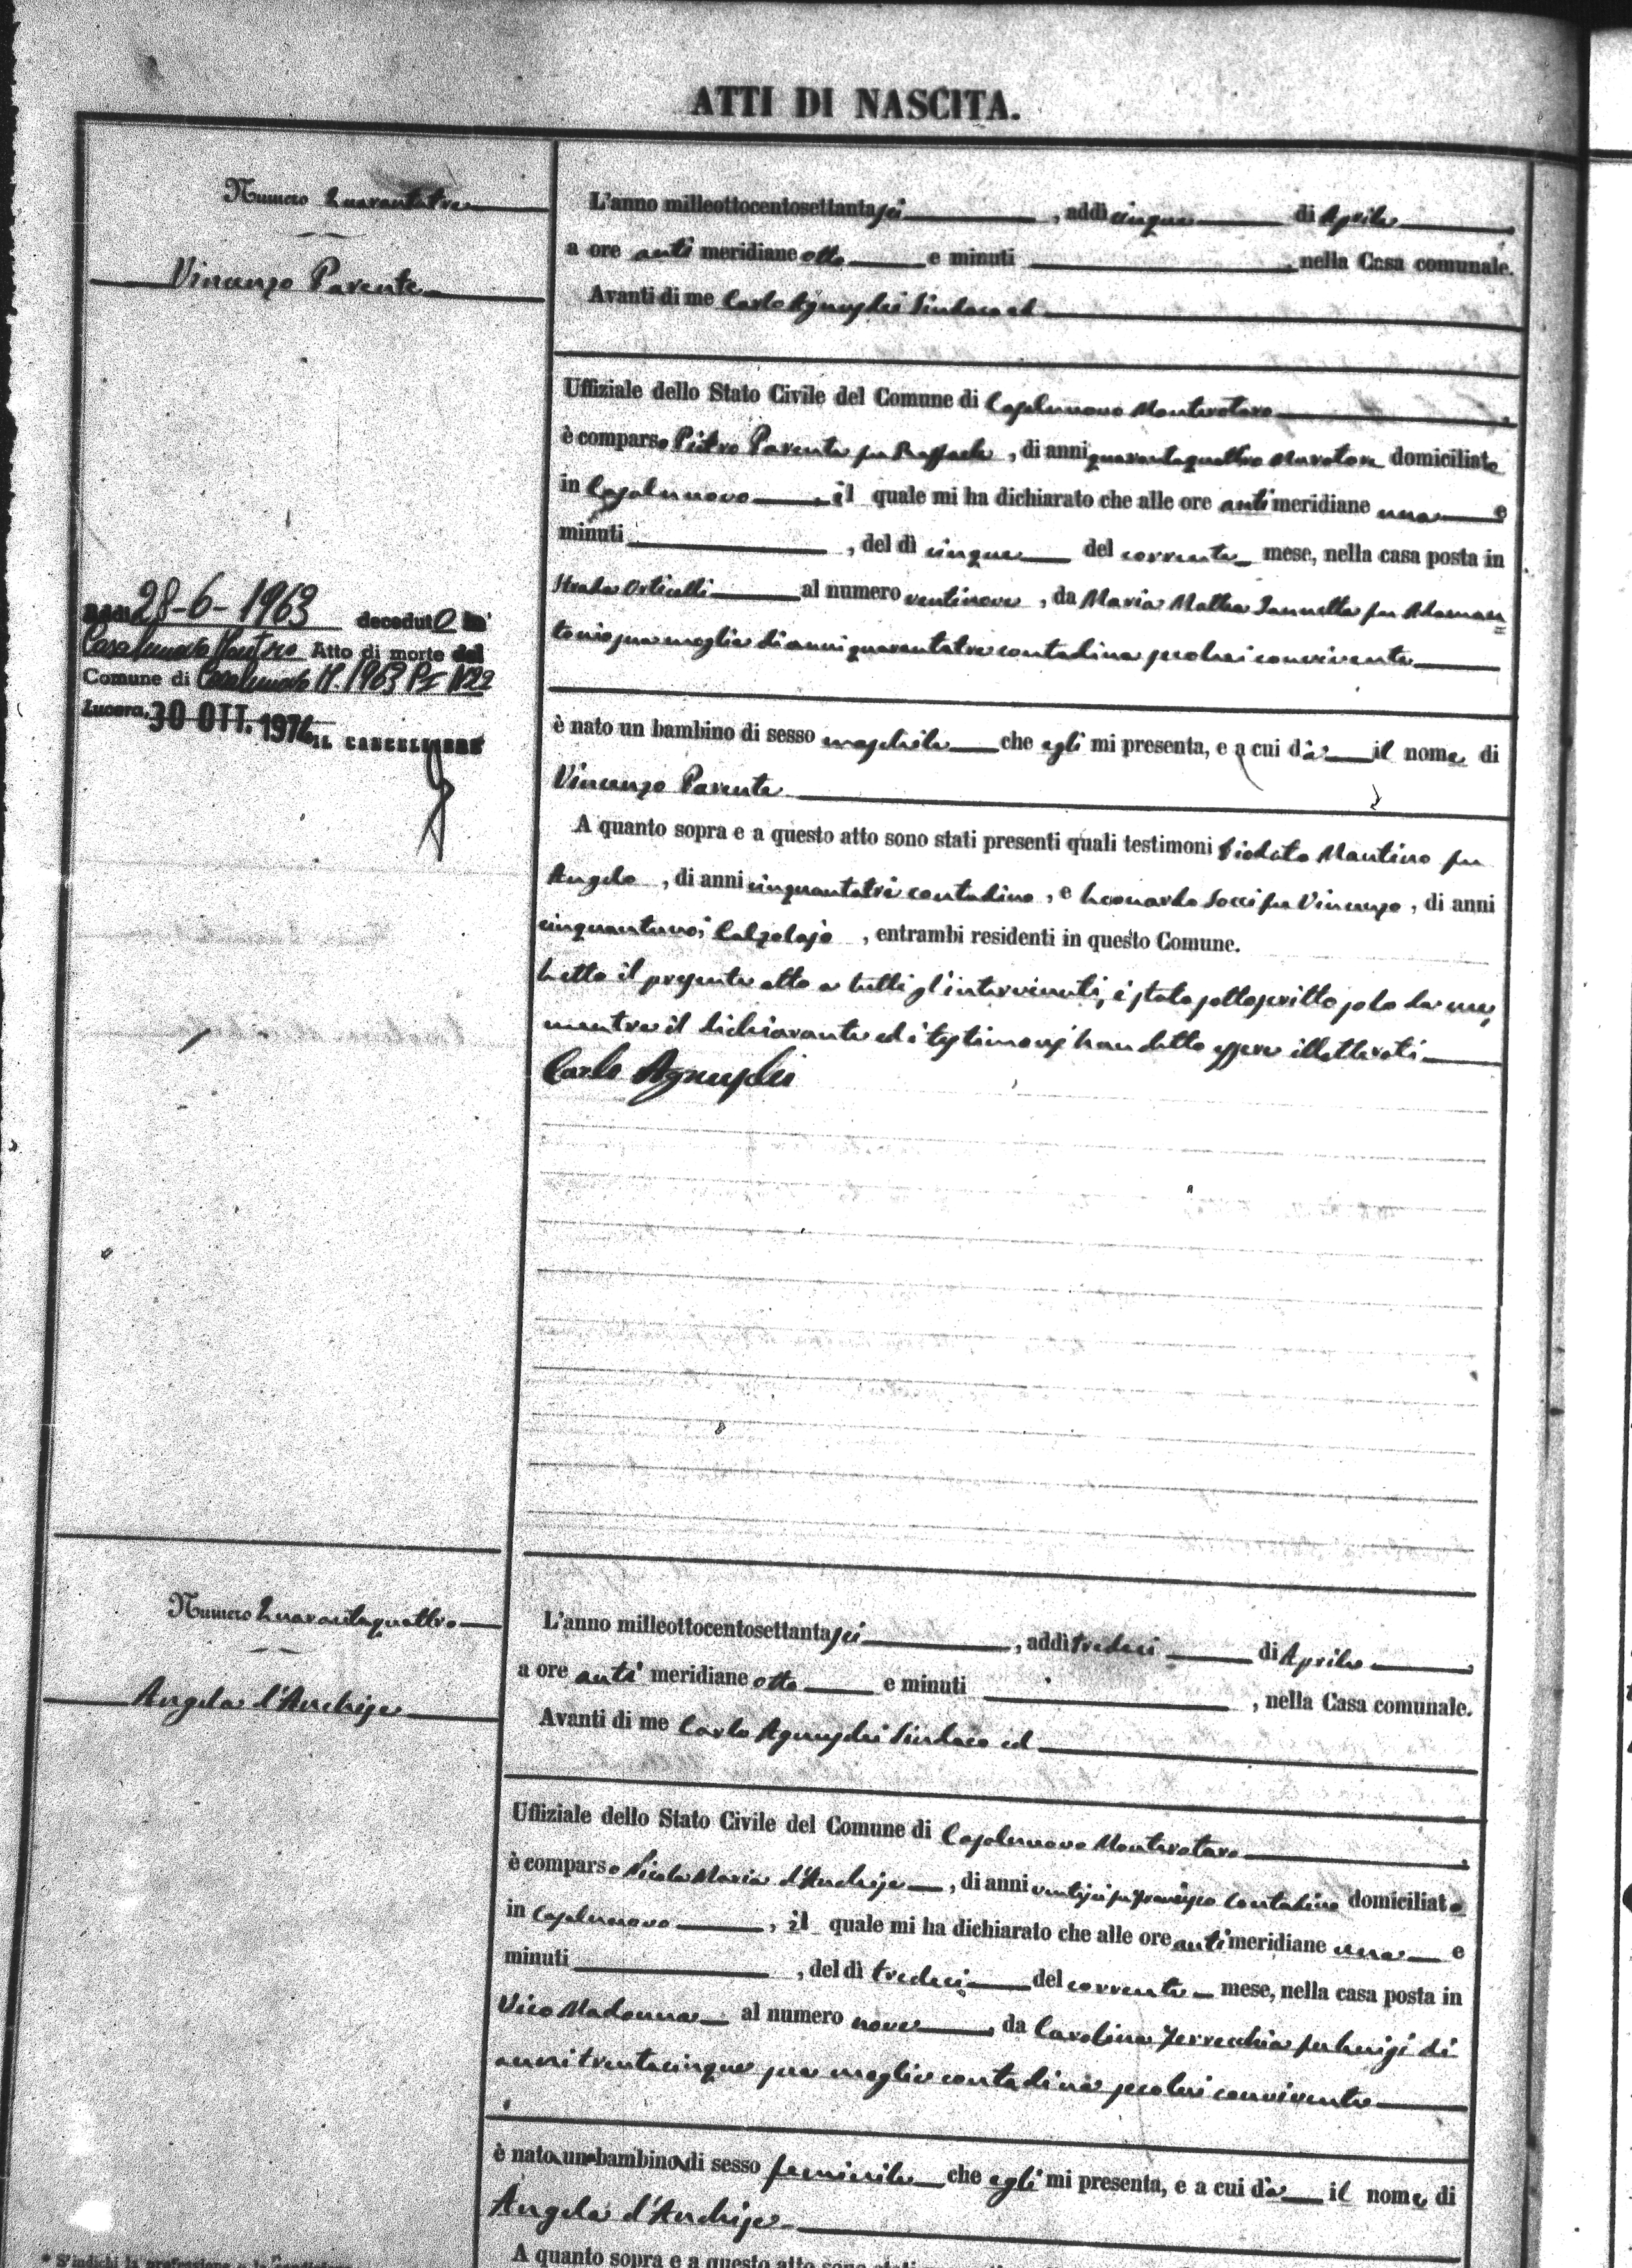 ATTI DI NASCITA.
Numero Quarantatre
Vincenzo Parente
28-6-1963 decedut
Casalnuovo Monter Atto di morte
Comune di Casalnuovo M. 1963 P I N 22
Lucera, 30 OTT. 1974 IL CANCELLIERE
L'anno milleottocentosettantasei, addì cinque di Aprile,
a ore anti meridiane otto e minuti , nella Casa comunale.
Avanti di me Carlo Agnusdei Sindaco ed
Uffiziale dello Stato Civile del Comune di Casalnuovo Monterotaro,
è comparso Pietro Parente fu Raffaele, di anni quarantaquattro Muratore domiciliato
in Casalnuovo, il quale mi ha dichiarato che alle ore anti meridiane una e
minuti , del dì cinque del corrente mese, nella casa posta in
Strada Orticelli al numero ventinove, da Maria Mattea Iannetta fu Adaman
tonio sua moglie di anni quarantatre contadina secolui convivente
è nato un bambino di sesso maschile che egli mi presenta, e a cui dà il nome di
Vincenzo Parente
A quanto sopra e a questo atto sono stati presenti quali testimoni Diodato Mantino fu
Angelo, di anni cinquantatre contadino, e Leonardo Socci fu Vincenzo, di anni
cinquantuno, Calzolajo, entrambi residenti in questo Comune.
Letto il presente atto a tutti gl'intervenuti, è stato sottoscritto solo da me,
mentre il dichiarante ed i testimoni han detto essere illetterati
Carlo Agnusdei
Numero Quarantaquattro
Angela d'Anchise
L'anno milleottocentosettantasei, addì tredici di Aprile,
a ore anti meridiane otto e minuti , nella Casa comunale.
Avanti di me Carlo Agnusdei Sindaco ed
Uffiziale dello Stato Civile del Comune di Casalnuovo Monterotaro,
è comparso Nicola Maria d'Anchise, di anni ventisei fu Francesco Contadino domiciliato
in Casalnuovo, il quale mi ha dichiarato che alle ore anti meridiane una e
minuti , del dì tredici del corrente mese, nella casa posta in
Vico Madonna al numero nove, da Carolina Ferrecchia fu Luigi di
anni trentacinque sua moglie contadina secolui convivente
è nato un bambino di sesso feminile che egli mi presenta, e a cui dà il nome di
Angela d'Anchise
* S'indichi la professione o la
A quanto sopra e a questo atto sono stati